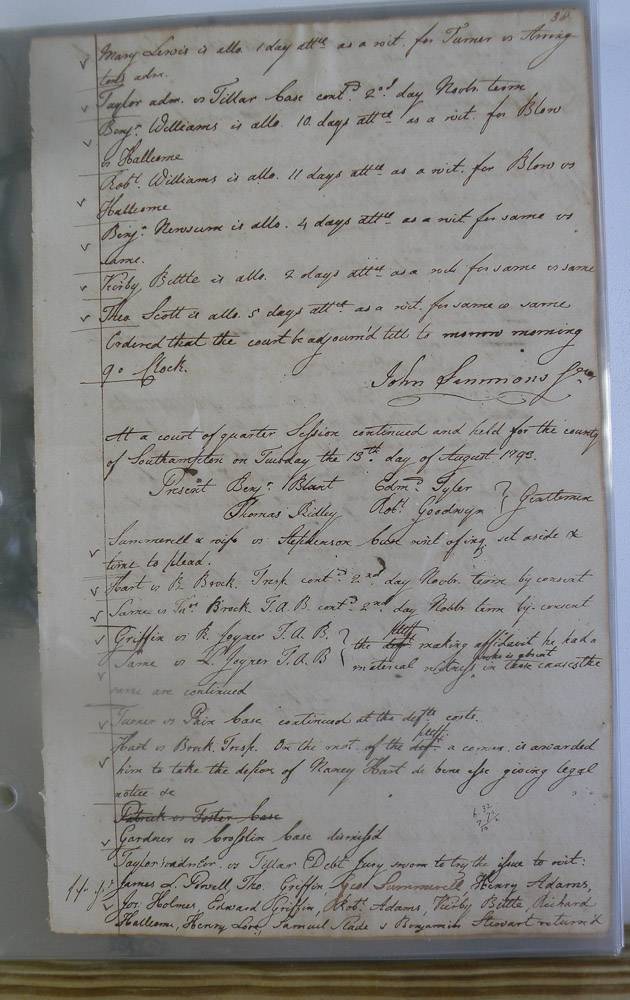 38
Mary Lewis is allo. 1 day attce as a wit. for Turner vs Arring
tons adm.
Taylor adm. vs Tillar Case contd. 2nd day Novbr. term
Benja. Williams is allo. 10. days attce as a wit. for Blow
vs Hallcome
Robt. Williams is allo. 11 days attce as a wit. for Blow vs
Hallcome
Benja. Newsum is allo. 4 days attce as a wit for same vs
same.
Kirby Bittle is allo. 2 days attce as a wit for same vs same
Theo Scott is allo. 5 days attce as a wit. for same vs. same
Ordered that the court be adjourn'd till to morrow morning
9 o Clock.
John Simmons
At a court of quarter Session continued and held for the county
of Southampton on Tuesday the 13th. day of August 1793.
Present Benja. Blunt Edmd. Tyler
Thomas Ridley Robt. Goodwyn } Gentlemen
Summerell & wife vs Stephenson writ of inq set aside &
time to plead.
Hart vs B. Brock. Tresp. contd. 2nd day Novbr. term by consent
Same vs Brock T.A.B. contd. 2nd day Novbr term by consent
Griffin vs K. Joyner T.A.B. } the deft pltff making affidavit he had a
Same vs L. Joyner T.A.B material witness who is absent in these causes the
same are continued
Turner vs Pain Case continued at the defts costs.
Hart vs Brock Tresp. On the mot. of the deft pltff. a comn. is awarded
him to take the depson of Nancy Hart de bene esse giving legal
notice &c
Patrick vs Foster Case
Gardner vs Crosslin Case dismissd
Taylor vs Tillar Debt Jury sworn to try the issue to wit:
James L. Powell Tho. Griffin Summerell Henry Adams,
Jos. Holmes, Edward Griffin, Robt. Adams, Kirby Bittle, Richard
Hallcome, Henry Love, Samuel Slade & Benjamin Stewart return'd